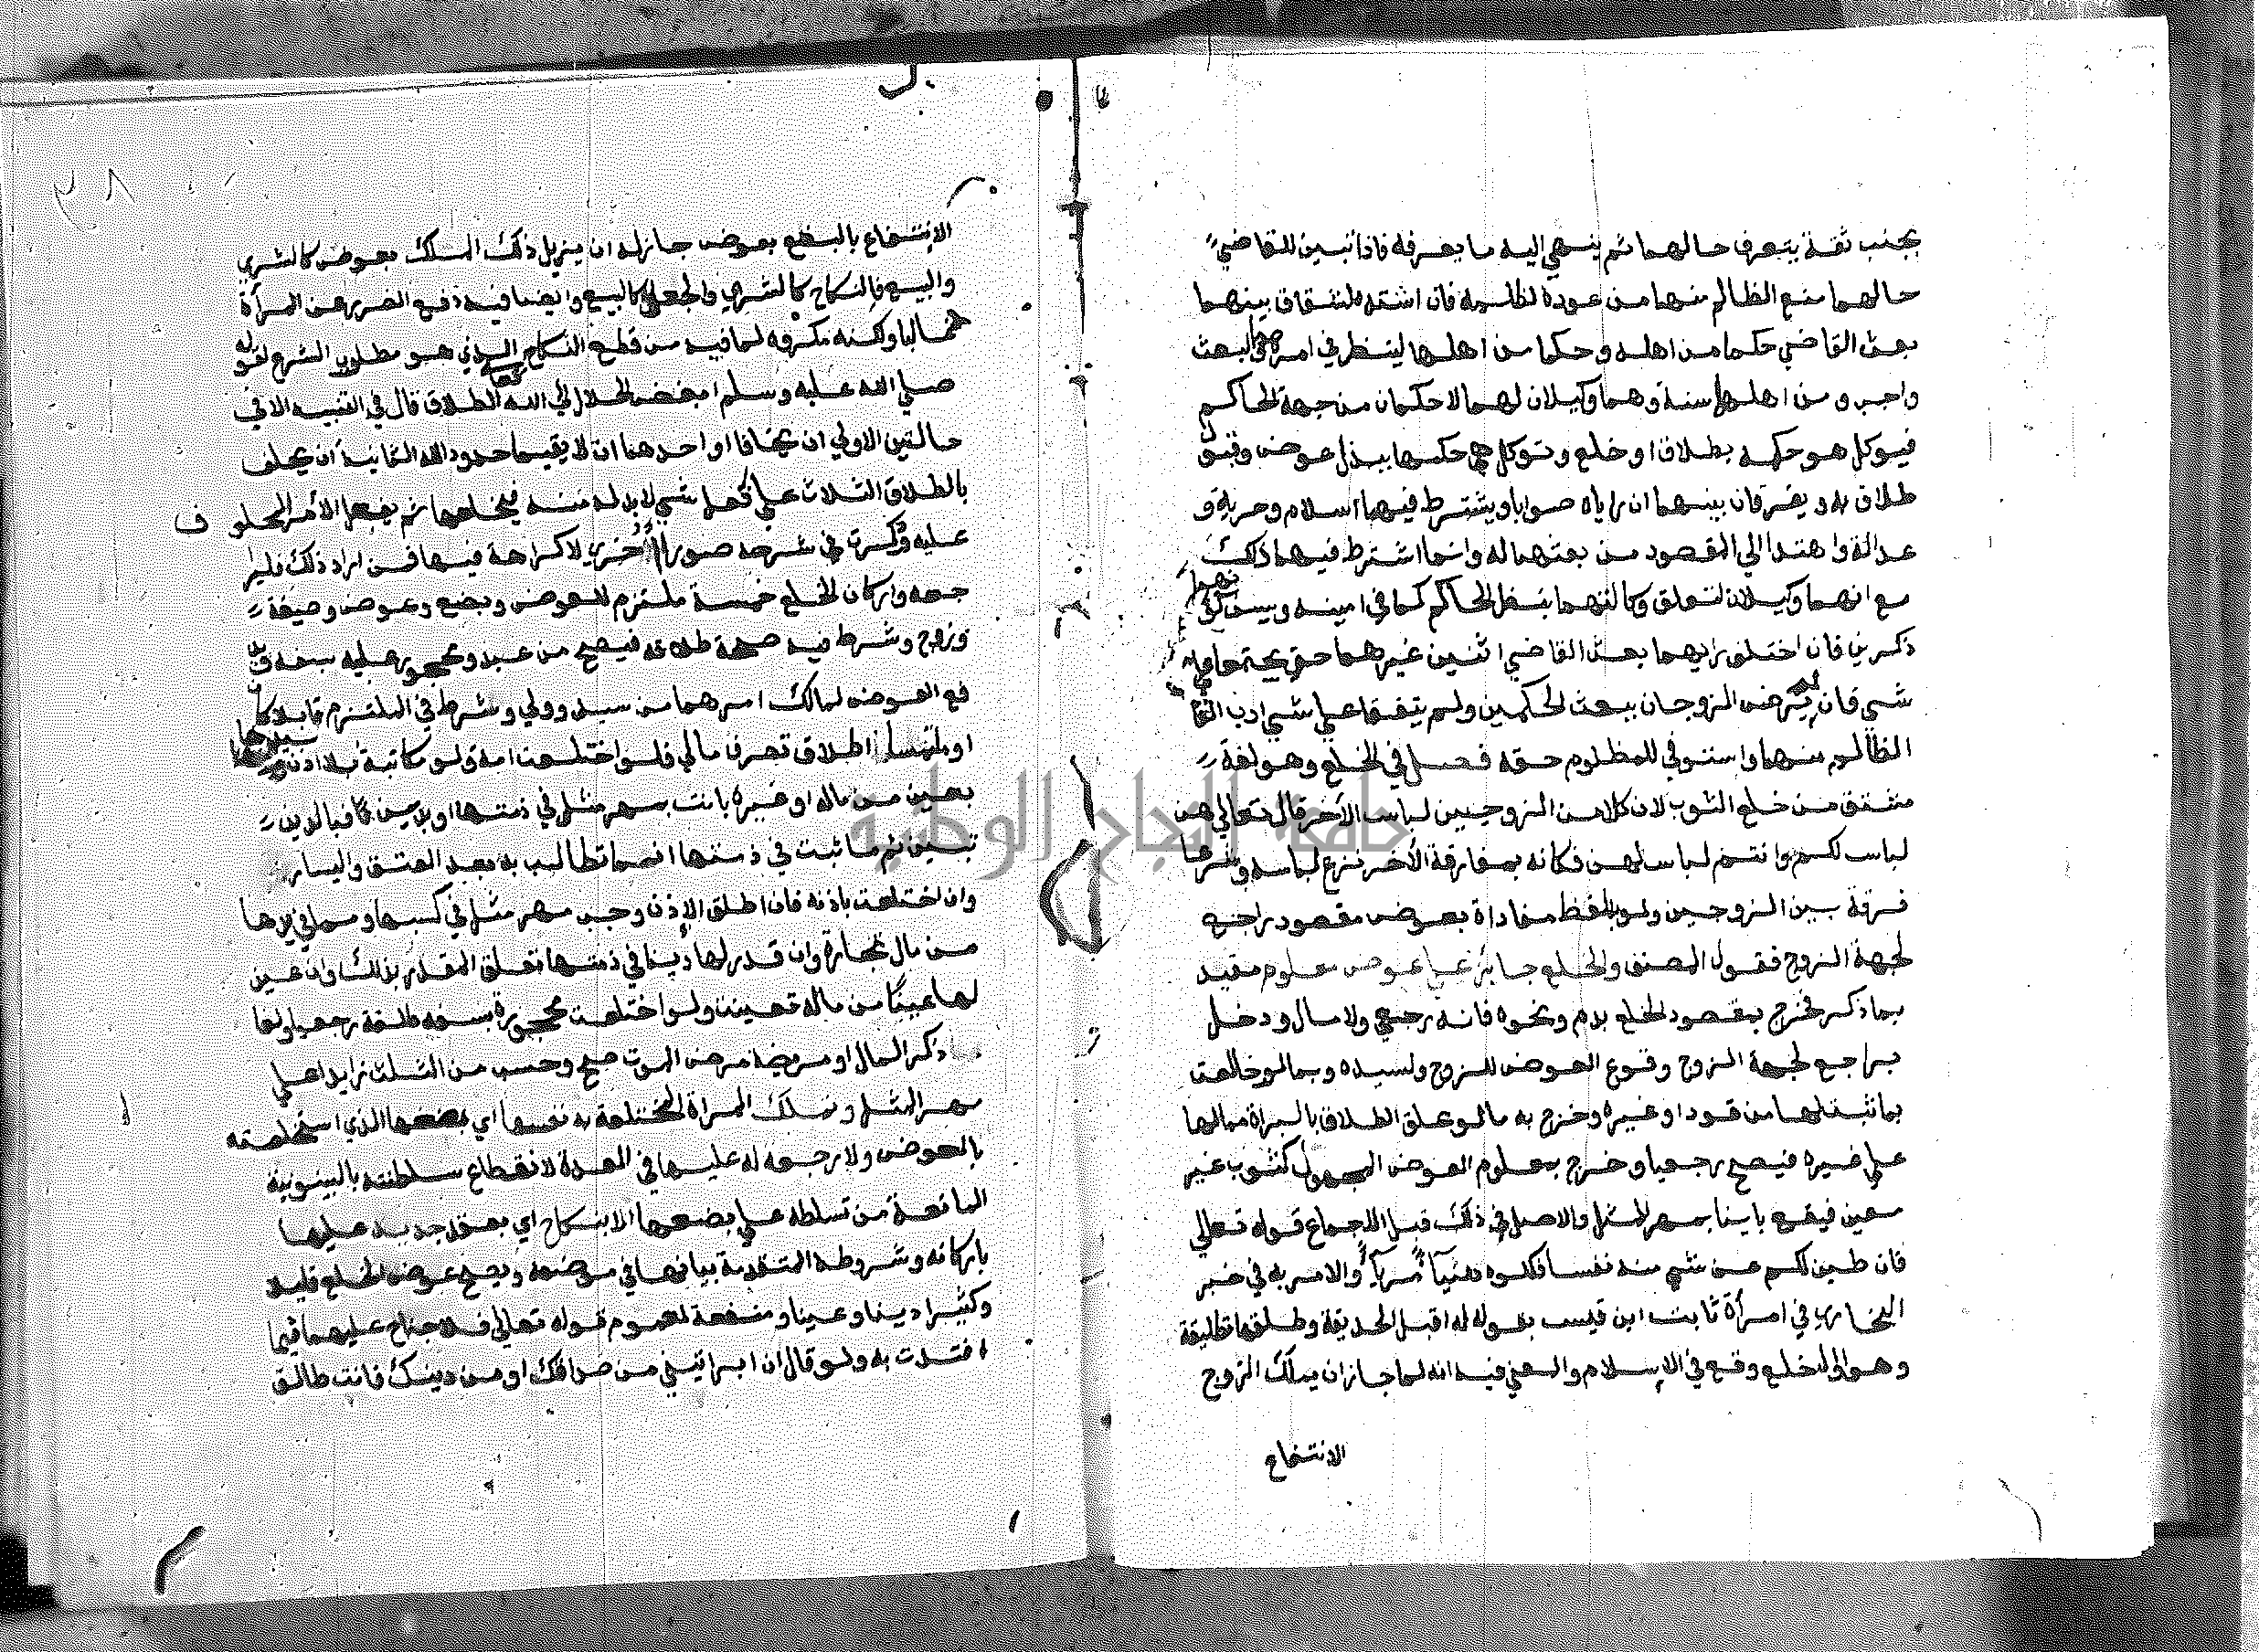 بجنب ثقة يتعرف حالهما ثم ينهي اليه ما يعرفه فاذا تبين للقاضي
حالهما منع الظالم منهما من عوده لظلمه فان اشتد الشقاق بينهما
بعث القاضي حكما من اهله وحكما من اهلها لينظر في امرهما والبعث
واجب ومن اهلهما سنة وهما وكيلان لهما لا حكمان من جهة الحاكم
فيوكل هو حكمه بطلاق او خلع وتوكل هي حكمها ببذل عوض وقبول
طلاق به ويفرقان بينهما ان راياه صوابا ويشترط فيهما اسلام وحرية و
عدالة واهتدا الي المقصود من بعثهما له وانما اشترط فيهما ذلك
مع انهما وكيلان لتعلق وكالتهما بنظر الحاكم كما في امينه ويسن كونهما
ذكرين فان اختلف رايهما بعث القاضي اثنين غيرهما حتى يجتمعا علي
شي فان لم يرض الزوجان ببعث الحكمين ولم يتفقا علي شي ادب القا
الظالم منهما واستوفي للمظلوم حقه فصل في الخلع وهو لغة
مشتق من خلع الثوب لان كلا من الزوجين لباس الاخر قال تعالي هن
لباس لكم وانتم لباس لهن فكانه بمفارقة الأخر نزع لباسه وشرعا
فرقة بين الزوجين ولو بلفظ مفاداة بعوض مقصود راجع
لجهة الزوج فقول المصنف والخلع جايز علي عوض معلوم مقيد
بما ذكر فخرج بمقصود الخلع بدم ونحوه فانه رجعي ولا مال ودخل
براجع لجهة الزوج وقوع العوض للزوج ولسيده وبما لو خالعت
بما ثبت لها من قود او غيره وخرج به ما لو علق الطلاق بالبراة مما لها
علي غيره فيصح رجعيا وخرج بمعلوم العوض المجهول كثوب غير
معين فيقع باينا بمهر المثل والاصل في ذلك قبل الاجماع قوله تعالي
فان طبن لكم عن شي منه نفسا فكلوه هنيا مريا والامر به في خبر
البخاري في امرأة ثابت ابن قيس بقوله له اقبل الحديقة وطلقها تطليقة
وهو اول خلع وقع في الاسلام والمعني فيه انه لما جاز ان يملك الزوج
الانتفاع
الانتفاع بالبضع بعوض جاز له ان يزيل ذلك الملك بعوض كالشري
والبيع فالنكاح كالشري والخلع كالبيع وايضا فيه دفع الضرر عن المرأة
غالبا ولكنه مكروه لما فيه من قطع النكاح الذي هو مطلوب الشرع لقوله
صلي الله عليه وسلم ابغض الحلال الي الله تعالى الطلاق قال في التنبيه الا في
حالتين الاولي ان يخافا او احدهما ان لا يقيما حدود الله الثانية أن يحلف
بالطلاق الثلاث علي فعل شي لا بد له منه فيخلعها ثم يفعل الأمر المحلوف
عليه وذكرت في شرحه صورا أخرى لا كراهة فيها فمن اراد ذلك فليرا
جعه واركان الخلع خمسة ملتزم للعوض وبضع وعوض وصيغة
وزوج وشرط فيه صحة طلاقه فيصح من عبد ومحجور عليه بسفه ويد
فع العوض لمالك امرهما من سيد وولي وشرط في الملتزم قابلا كان
او ملتمسا اطلاق تصرف مالي فلو اختلعت امة ولو مكاتبة بلا اذن سيدها
بعين من ماله او غيره بانت بمهر مثل في ذمتها او بدين فبالدين
تبين ثم ما ثبت في ذمتها انما تطالب به بعد العتق واليسار
وان اختلعت باذنه فان اطلق الاذن وجب مهر مثل في كسبها ومما في يدها
من مال تجارة وان قدر لها دينا في ذمتها تعلق المقدر بذلك وان عين
لها عينا من ماله تعينت ولو اختلعت محجورة بسفه طلقت رجعيا ولغا
ذكر المال او مريضة مرض الموت صح وحسب من الثلث زايد علي
مهر المثل وتملك المراة المختلعة به نفسها اي بضعها الذي استخلعته
بالعوض ولا رجعة له عليها في العدة لانقطاع سلطنته بالبينونة
المانعة من تسلطه علي بضعها الا بنكاح اي بعقد جديد عليها
باركانه وشروطه المتقدمة بيانها في موضعه ويصح عوض الخلع قليلا
وكثيرا دينا وعينا ومنفعة لعموم قوله تعالى فلا جناح عليهما فيما
افتدت به ولو قال ان ابراتيني من صداقك او من دينك فانت طالق